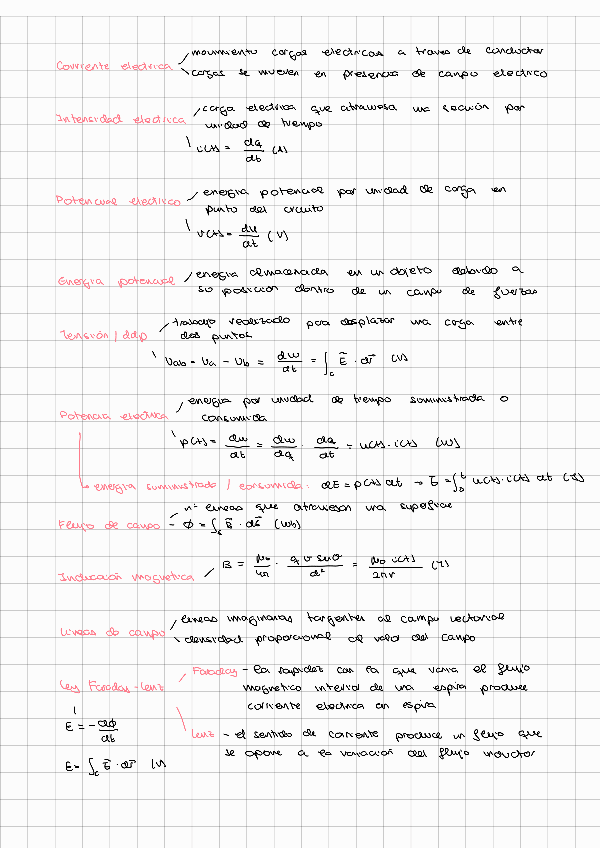 Corriente electrica
movimiento cargas electricas a traves de conductor
cargas se mueven en presencia de campo electrico
Intensidad electrica
carga electrica que atraviesa una sección por
unidad de tiempo
i(t) = dq/dt (A)
Potencial electrico
energia potencial por unidad de carga en
punto del circuito
v(t) = du/dt (V)
Energia potencial
energia almacenada en un objeto debido a
su posicion dentro de un campo de fuerzas
Tensión / ddp
trabajo realizado para desplazar una carga entre
dos puntos
Vab = Va - Vb = dw/dt = ∫c E · dr (V)
Potencia electrica
energia por unidad de tiempo suministrada o
consumida
p(t) = dw/dt = dw/dq · dq/dt = u(t) · i(t) (W)
energia suministrada / consumida: dE = p(t) dt → E = ∫₀ᵗ u(t) · i(t) dt (J)
Flujo de campo
nº lineas que atraviesan una superficie
Φ = ∫s B · ds (Wb)
Inducción magnetica
B = μ₀/4π · q v senθ/d² = μ₀ i(t)/2πr (T)
Lineas de campo
lineas imaginarias tangentes al campo vectorial
densidad proporcional al valor del campo
Ley Faraday - Lenz
Faraday - la rapidez con la que varia el flujo
magnetico interior de una espira produce
corriente electrica en espira
E = -dΦ/dt
Lenz - el sentido de corriente produce un flujo que
se opone a la variación del flujo inductor
E = ∫c E · dr (V)